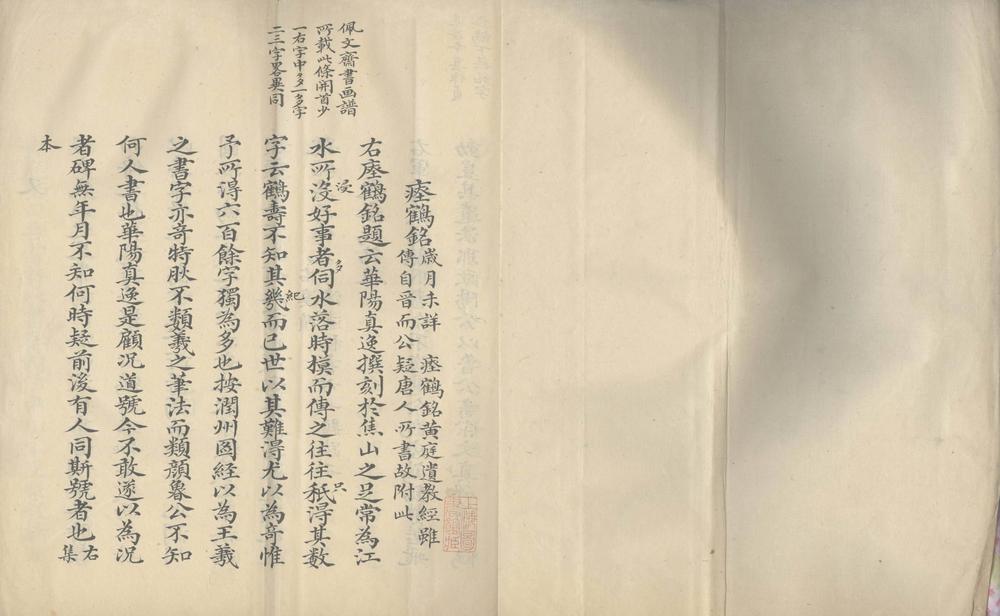 佩文齋書画譜
所載此條開首少
一右字中多一多字
二三字畧異同
瘞鶴銘
歲月未詳 瘞鶴銘黄庭遺教經雖
傳自晉而公疑唐人所書故附此
右瘞鶴銘題云華陽真逸撰刻於焦山之足常為江
水所没好事者伺水落時模而傳之往往秖得其数
浸
多
只
字云鶴壽不知其幾而已世以其難得尤以為奇惟
紀
予所得六百餘字獨為多也按潤州圖経以為王羲
之書字亦奇特肰不類羲之筆法而類顔魯公不知
何人書也華陽真逸是顧况道號今不敢遂以為况
者碑無年月不知何時疑前後有人同斯號者也
右集
本